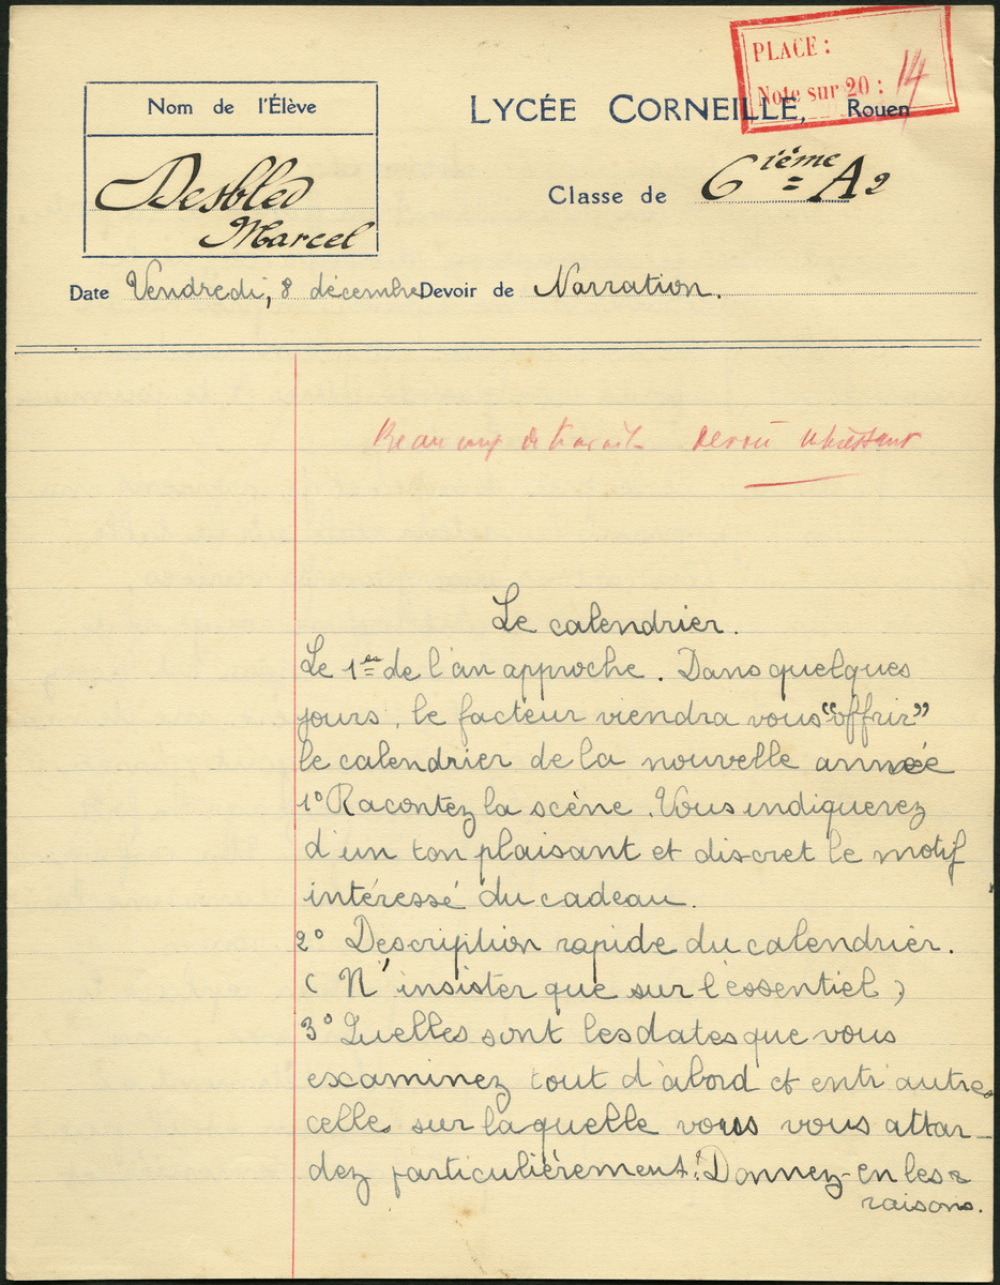 PLACE :
Note sur 20 : 14
Nom de l'Élève
LYCÉE CORNEILLE, Rouen
Desbled
Marcel
Classe de 6ième A2
Date Vendredi, 8 décembre Devoir de Narration.
Beaucoup de travail. Devoir intéressant
Le calendrier.
Le 1er de l'an approche. Dans quelques
jours, le facteur viendra vous "offrir"
le calendrier de la nouvelle année
1° Racontez la scène. Vous indiquerez
d'un ton plaisant et discret le motif
intéressé du cadeau.
2° Description rapide du calendrier.
( N'insister que sur l'essentiel )
3° Quelles sont les dates que vous
examinez tout d'abord et entr'autres
celle sur laquelle vous vous attar-
dez particulièrement. Donnez-en les
raisons.